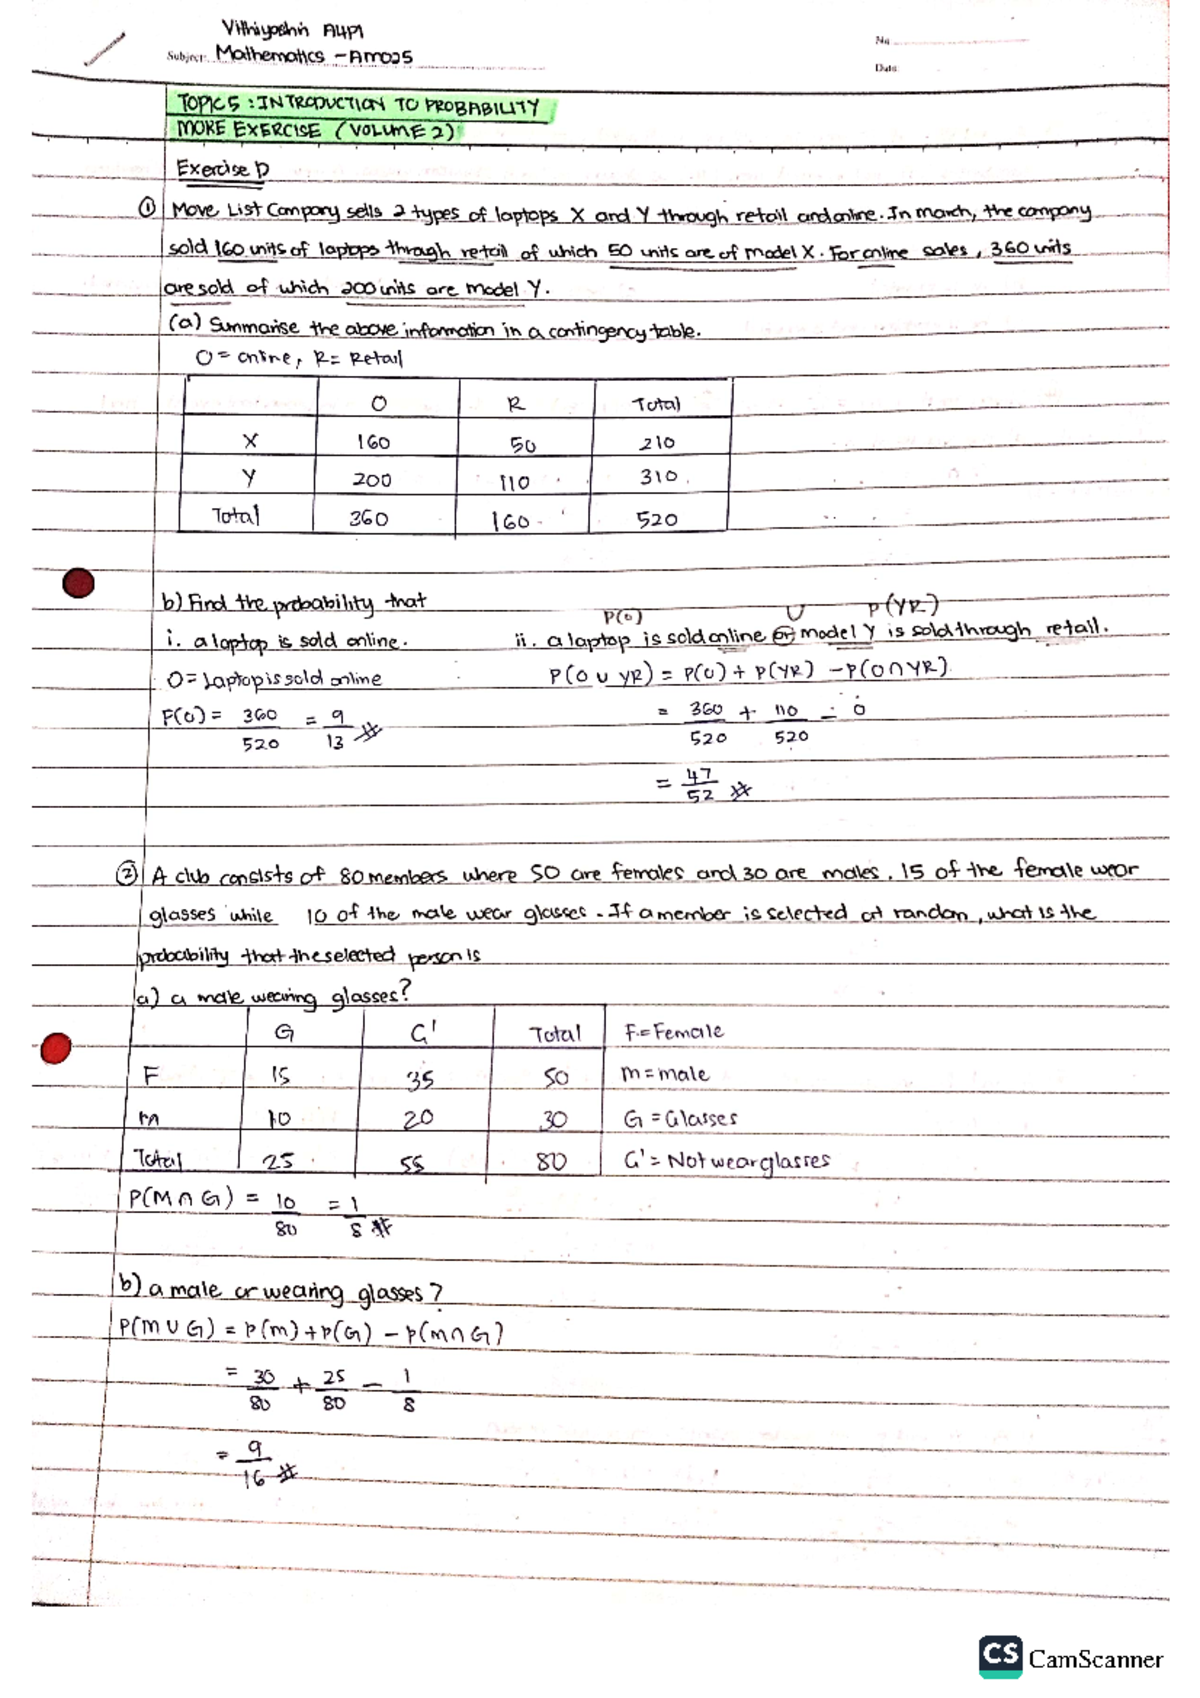 Vithiyoshin A4P1
Subject: Mathematics - AM025
No
Date:
TOPIC 5 : INTRODUCTION TO PROBABILITY
MORE EXERCISE (VOLUME 2)
Exercise D
① Move List Company sells 2 types of laptops X and Y through retail and online. In march, the company
sold 160 units of laptops through retail of which 50 units are of model X. For online sales, 360 units
are sold of which 200 units are model Y.
(a) Summarise the above information in a contingency table.
O = online, R = Retail
O R Total
X 160 50 210
Y 200 110 310
Total 360 160 520
b) Find the probability that
P(O) U P(YR)
i. a laptop is sold online. ii. a laptop is sold online or model Y is sold through retail.
O = Laptop is sold online P(O ∪ YR) = P(O) + P(YR) - P(O ∩ YR)
P(O) = 360/520 = 9/13 # = 360/520 + 110/520 - 0
= 47/52 #
② A club consists of 80 members where 50 are females and 30 are males. 15 of the female wear
glasses while 10 of the male wear glasses. If a member is selected at random, what is the
probability that the selected person is
a) a male wearing glasses?
G G' Total F = Female
F 15 35 50 m = male
m 10 20 30 G = Glasses
Total 25 55 80 G' = Not wear glasses
P(M ∩ G) = 10/80 = 1/8 #
b) a male or wearing glasses?
P(M ∪ G) = P(m) + P(G) - P(m ∩ G)
= 30/80 + 25/80 - 1/8
= 9/16 #
CS CamScanner